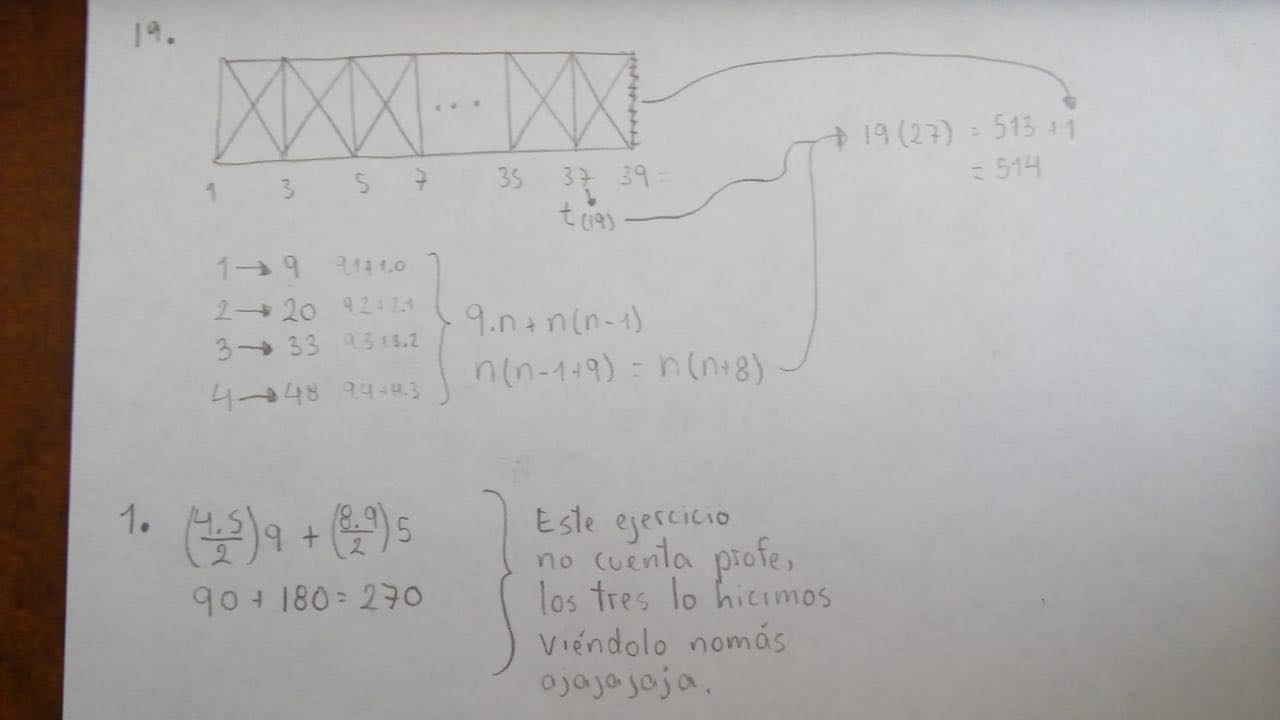 19.
19(27) = 513 + 1
= 514
1 3 5 7 ... 35 37 39 =
t(19)
1 → 9 9.1+1.0
2 → 20 9.2+2.1
3 → 33 9.3+3.2
4 → 48 9.4+4.3
9.n + n(n-1)
n(n-1+9) = n(n+8)
1. (4.5/2)9 + (8.9/2)5
90 + 180 = 270
Este ejercicio
no cuenta profe,
los tres lo hicimos
viéndolo nomás
ajajajaja.